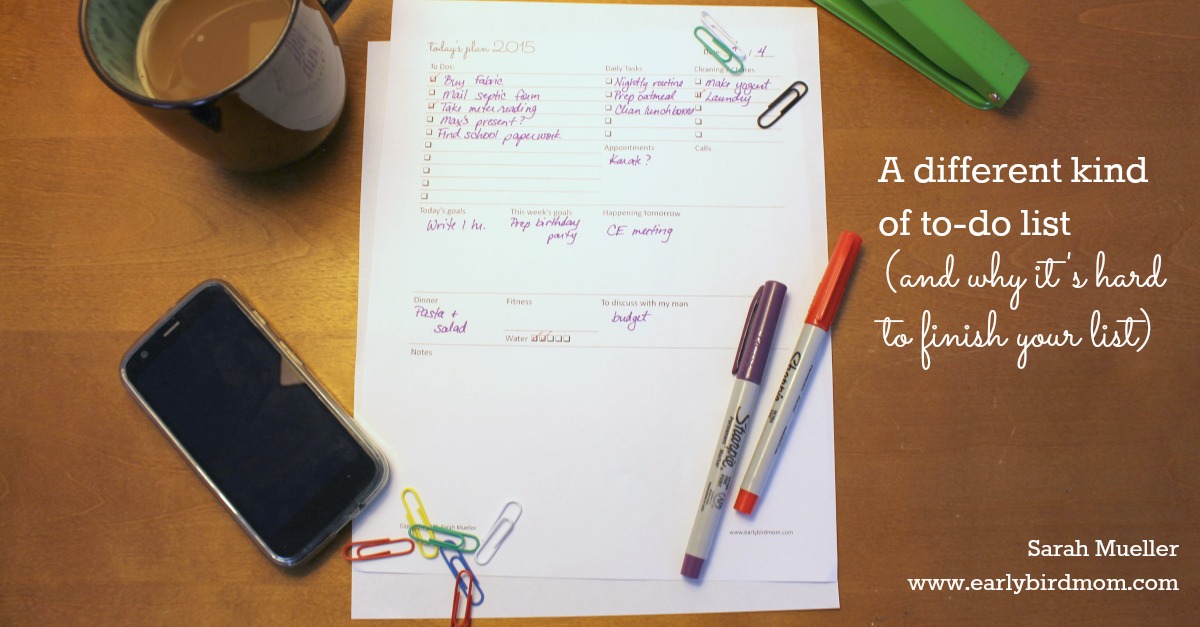 today's plan 2015
/ 4
To Dos:
Buy Fabric
Mail septic form
Take meter reading
Max's present?
Find school paperwork
Daily Tasks
Nightly routine
Prep oatmeal
Clean lunchboxes
Cleaning
make yogurt
Laundry
Appointments
Karate?
Calls
Today's goals
Write 1 hr.
This week's goals
Prep birthday
party
Happening tomorrow
CE meeting
Dinner
Pasta +
salad
Fitness
Water
To discuss with my man
budget
Notes
Sarah Mueller
www.earlybirdmom.com
Sharpie
Sharpie
A different kind
of to-do list
(and why it's hard
to finish your list)
Sarah Mueller
www.earlybirdmom.com